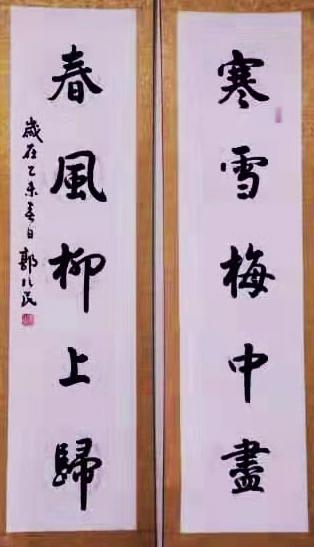 寒雪梅中盡
春風柳上歸
歲在乙未春日郭